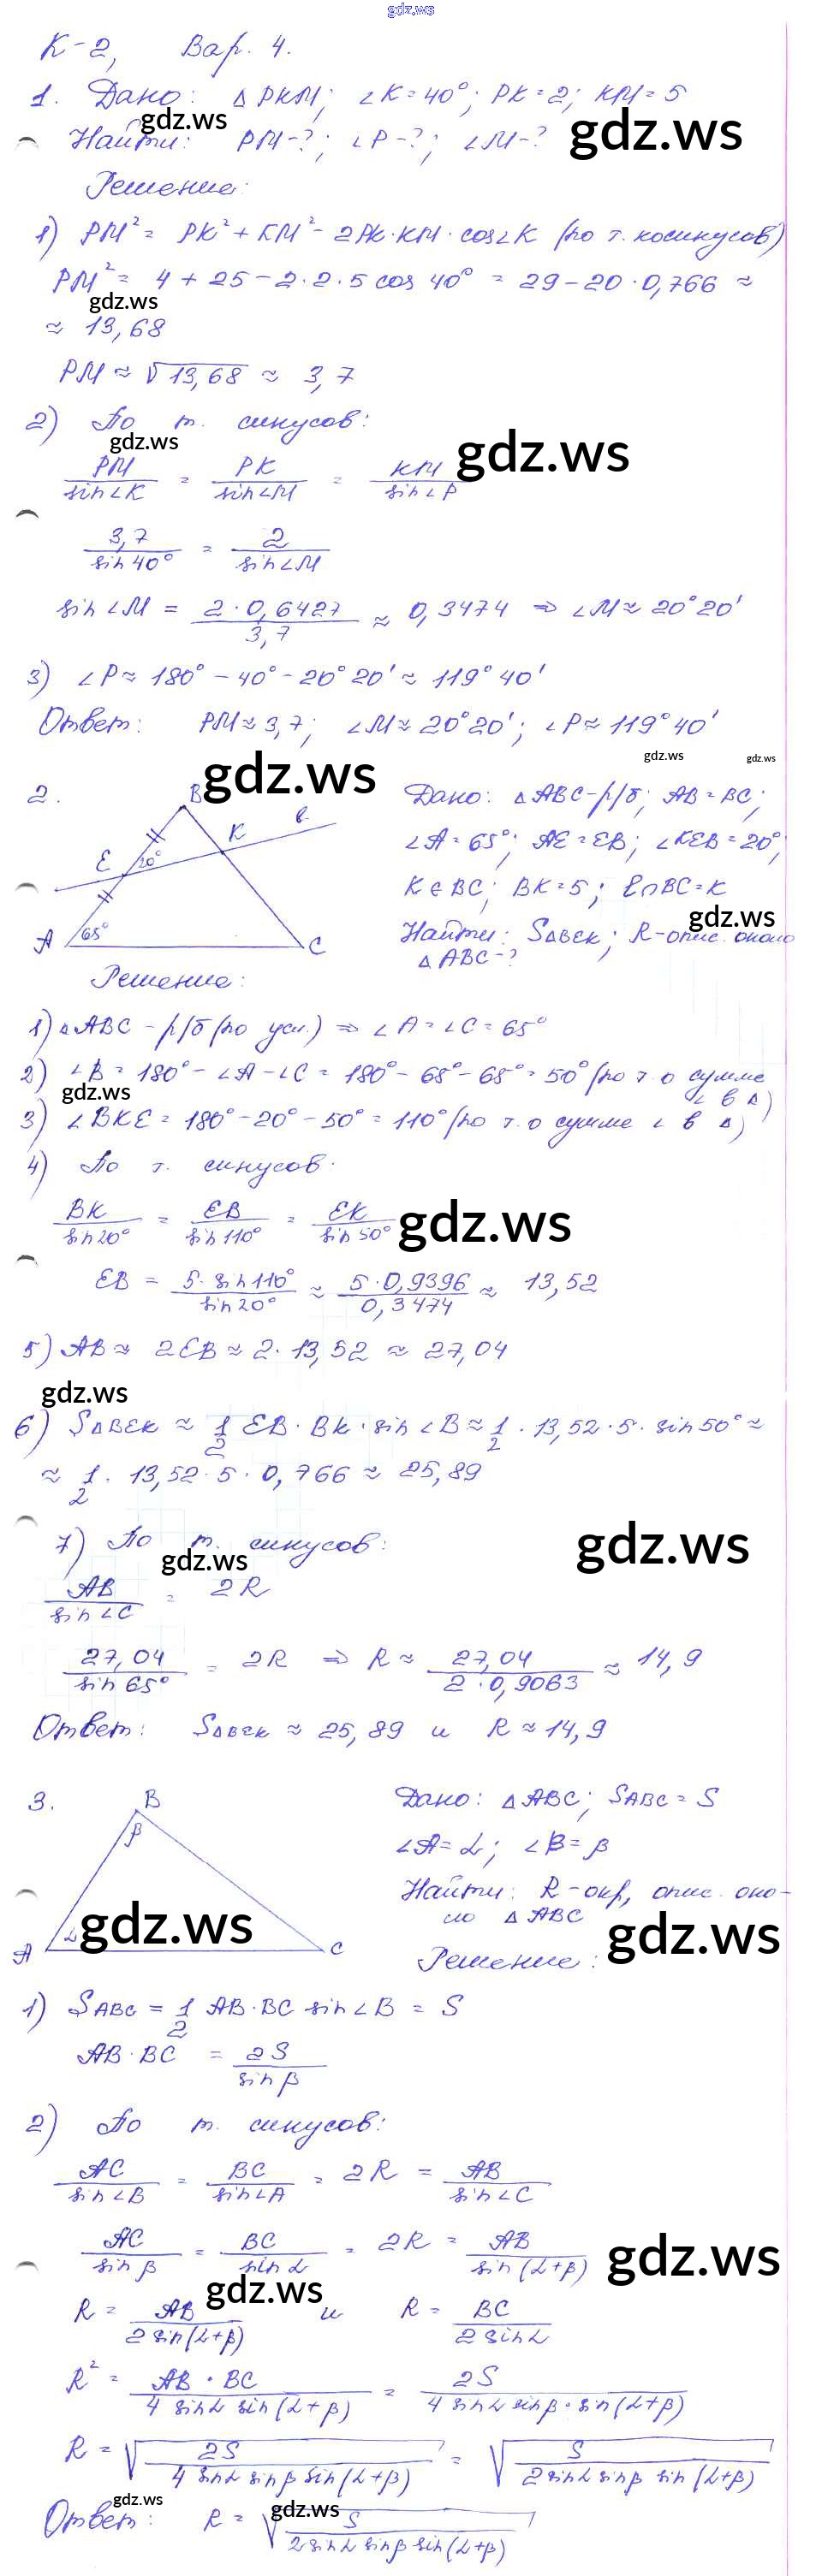 gdz.ws
К-2, Вар. 4.
1. Дано: △PKM; ∠K=40°; PK=2; KM=5
gdz.ws
gdz.ws
Найти: PM-?; ∠P-?; ∠M-?
Решение:
1) PM² = PK² + KM² - 2PK·KM·cos∠K (по т. косинусов)
PM² = 4 + 25 - 2·2·5 cos 40° = 29 - 20·0,766 ≈
gdz.ws
≈ 13,68
PM ≈ √13,68 ≈ 3,7
2) По т. синусов:
gdz.ws
gdz.ws
PM/sin∠K = PK/sin∠M = KM/sin∠P
3,7/sin40° = 2/sin∠M
sin∠M = 2·0,6427/3,7 ≈ 0,3474 ⇒ ∠M ≈ 20°20'
3) ∠P ≈ 180° - 40° - 20°20' ≈ 119°40'
Ответ: PM ≈ 3,7; ∠M ≈ 20°20'; ∠P ≈ 119°40'
gdz.ws
gdz.ws
gdz.ws
2.
B
K
в
E
20°
A
65°
C
Дано: △ABC-р/б; AB=BC;
∠A=65°; AE=EB; ∠KEB=20°;
K∈BC; BK=5; ℓ∩BC=K
gdz.ws
Найти: S△BEK; R-опис. около
△ABC-?
Решение:
1) △ABC-р/б (по усл.) ⇒ ∠A=∠C=65°
2) ∠B = 180° - ∠A - ∠C = 180° - 65° - 65° = 50° (по т. о сумме
∠ в △)
gdz.ws
3) ∠BKE = 180° - 20° - 50° = 110° (по т. о сумме ∠ в △)
4) По т. синусов.
BK/sin20° = EB/sin110° = EK/sin50°
gdz.ws
EB = 5·sin110°/sin20° ≈ 5·0,9396/0,3474 ≈ 13,52
5) AB ≈ 2EB ≈ 2·13,52 ≈ 27,04
gdz.ws
6) S△BEK ≈ 1/2 EB·BK·sin∠B ≈ 1/2·13,52·5·sin50° ≈
≈ 1/2·13,52·5·0,766 ≈ 25,89
7) По т. синусов:
gdz.ws
gdz.ws
AB/sin∠C = 2R
27,04/sin65° = 2R ⇒ R ≈ 27,04/2·0,9063 ≈ 14,9
Ответ: S△BEK ≈ 25,89 и R ≈ 14,9
3.
B
β
A
α
C
gdz.ws
Дано: △ABC; SABC=S
∠A=α; ∠B=β
Найти: R-окр, опис. око-
ло △ABC
gdz.ws
Решение:
1) SABC = 1/2 AB·BC sin∠B = S
AB·BC = 2S/sinβ
2) По т. синусов:
AC/sin∠B = BC/sin∠A = 2R = AB/sin∠C
AC/sinβ = BC/sinα = 2R = AB/sin(α+β)
gdz.ws
gdz.ws
R = AB/2sin(α+β) и R = BC/2sinα
R² = AB·BC/4sinα sin(α+β) = 2S/4sinα sinβ·sin(α+β)
R = √2S/4sinα sinβ sin(α+β) = √S/2sinα sinβ sin(α+β)
gdz.ws
gdz.ws
Ответ: R = √S/2sinα sinβ sin(α+β)